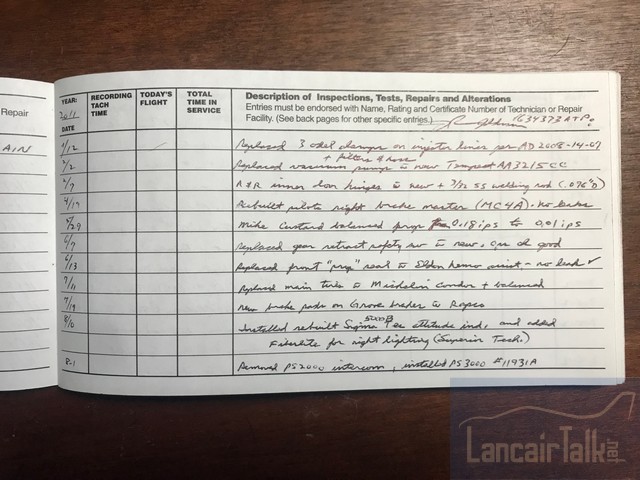 Repair
AIN
YEAR: 2011
DATE
RECORDING TACH TIME
TODAY'S FLIGHT
TOTAL TIME IN SERVICE
Description of Inspections, Tests, Repairs and Alterations
Entries must be endorsed with Name, Rating and Certificate Number of Technician or Repair
Facility. (See back pages for other specific entries.)
1634373 ATP
Replaced 3 clamps on injector lines per AD 2008-14-07
+ filters & hose
2/2 Replaced vacuum pump w new Tempest AA3215CC
R & R inner door hinges w new + 3/32 SS welding rod (.096"D)
4/17 Rebuilt pilots right brake master (MC4A). No leaks
Mike Custard balanced prop 0.18ips to 0.01ips
6/7 Replaced gear retract safety sw to new, good
6/13 Replaced front "prop" seal w Eldon assist - no leak
7/11 Replaced main tires w Michelin Condor + balanced
7/19 New brake pads on Grove brakes w Rapco
Installed rebuilt Sigma Tek 5000B attitude ind. and added
Fiberlite for night lighting (Superior Tech.)
8-1 Removed PS2000 intercom, installed PS3000 #11931A
LancairTalk.net